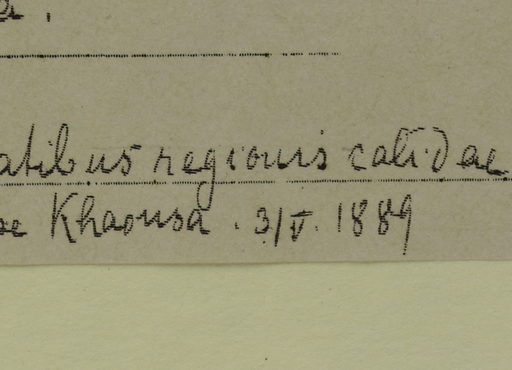 atibus regionis calidae
se Khaousa . 3/V. 1889